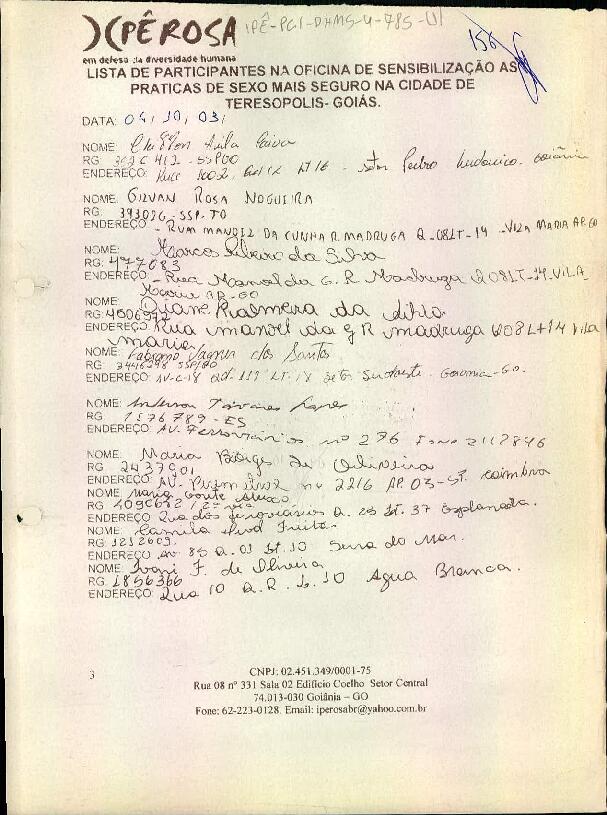 IPÊ ROSA IPÊ-PCI-DHMS-4-785-U1
em defesa da diversidade humana
156
LISTA DE PARTICIPANTES NA OFICINA DE SENSIBILIZAÇÃO AS
PRATICAS DE SEXO MAIS SEGURO NA CIDADE DE
TERESOPOLIS- GOIÁS.
DATA: 04, 10, 03,
NOME:
RG:
ENDEREÇO: Rua 1002, Lt 16 - setor Pedro Ludovico. Goiânia
NOME: GILVAN ROSA NOGUEIRA
RG: 393026-SSP-TO
ENDEREÇO - RUA MANOEL DA CUNHA R. MADRUGA Q-08LT-14 -VILA MARIA AP. GO
NOME: Marcos Ribeiro da Silva
RG: 477083
ENDEREÇO - Rua Manoel da G. R Madruga Q08LT-14. VILA
Maria AP-GO
NOME: Diane Palmeira da Silva
RG: 4006942
ENDEREÇO Rua manoel da g R madruga Q08Lt14 Vila
maria
NOME: Fabiano Vagner dos Santos
RG 2446298 SSP/GO
ENDEREÇO: AV-C-18 Qd-119 LT-18 Setor Sudoeste. Goiania-GO.
NOME: Tavares Lopes
RG. 1576789-ES
ENDEREÇO: AV. Ferroviários nº 276 Fone 2112846
NOME: Maria Borges de Oliveira
RG 2437901
ENDEREÇO: AV. nº 2216 AP. 03-St. coimbra
NOME: Maria
RG 2ª via
ENDEREÇO Rua dos ferroviarios Q. 25 Lt. 37 Esplanada.
NOME: Camila Silva Freitas
RG: 1212609
ENDEREÇO: Av. 85 Q. 01 Lt. 10 Serra do Mar.
NOME: Ivani F. de Oliveira
RG. 1856366
ENDEREÇO: Rua 10 Q. R. L. 10 Agua Branca.
3
CNPJ: 02.451.349/0001-75
Rua 08 nº 331 Sala 02 Edifício Coelho Setor Central
74.013-030 Goiânia – GO
Fone: 62-223-0128. Email: iperosabr@yahoo.com.br